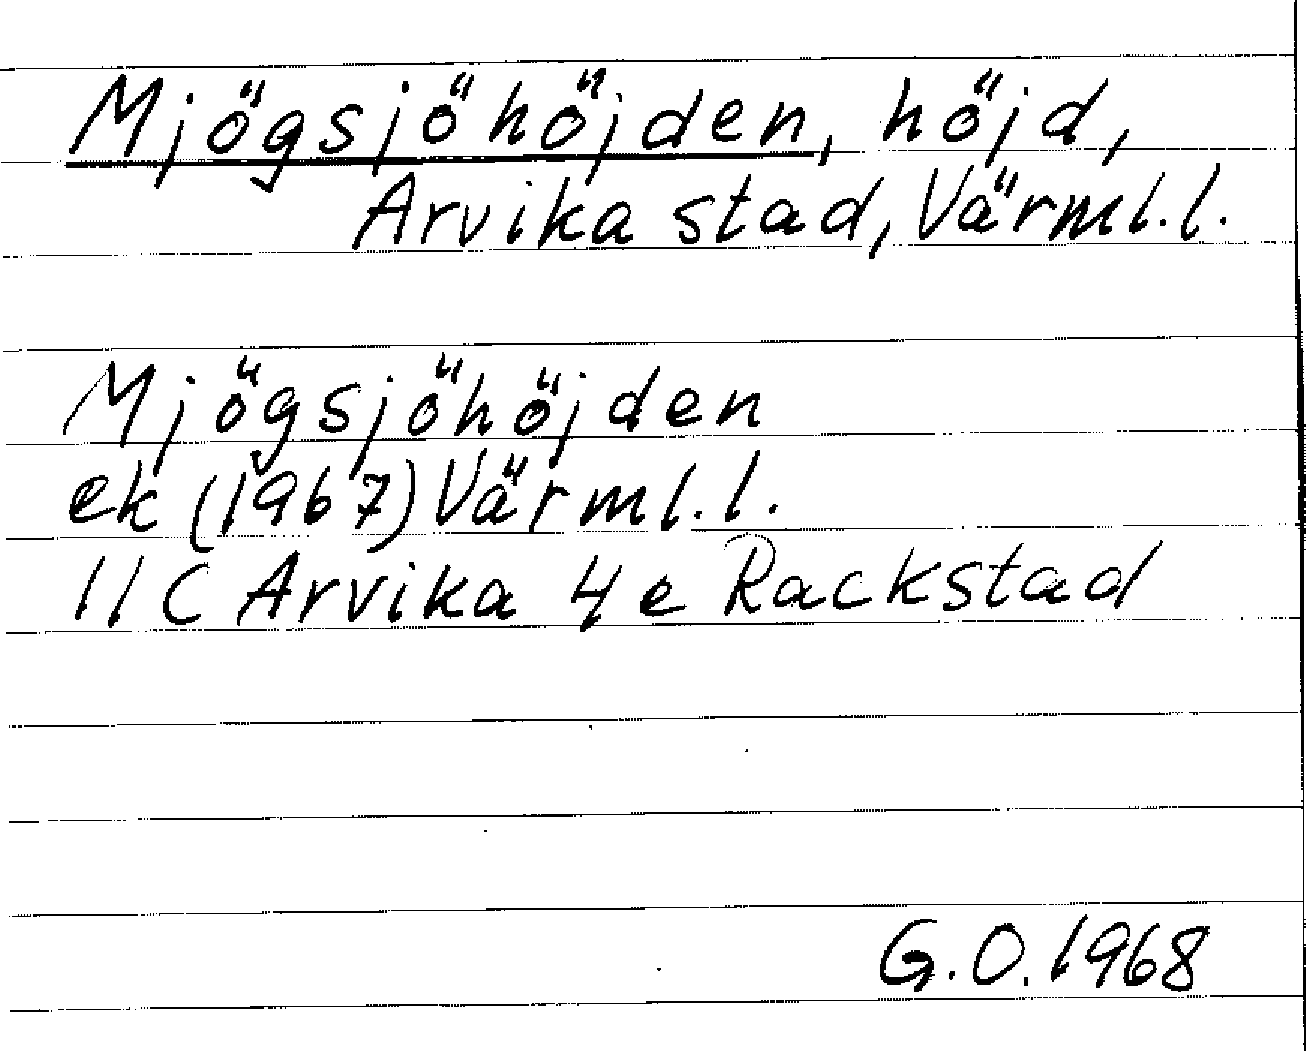 Mjögsjöhöjden, höjd,
Arvika stad, Värml.l.
Mjögsjöhöjden
ek (1967) Värml.l.
11C Arvika 4e Rackstad
G.O. 1968